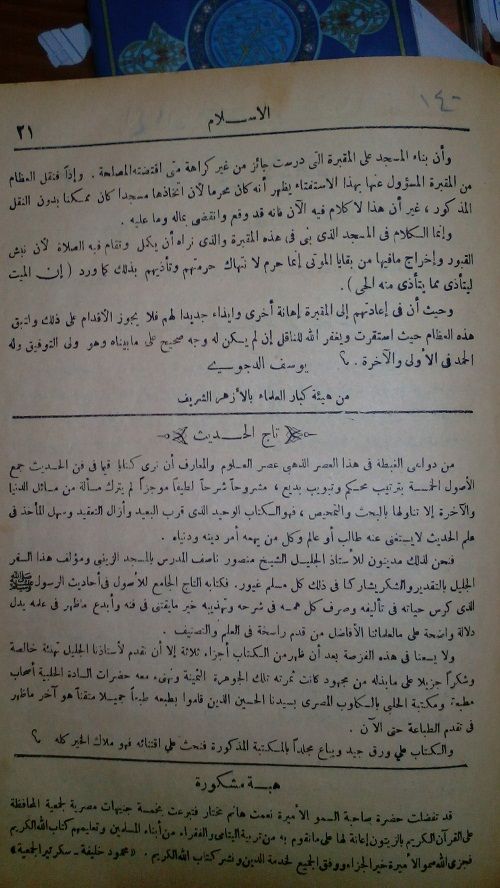 ١٤٠
الاسلام
٢١
وأن بناء المسجد على المقبرة التى درست جائز من غير كراهة متى اقتضته المصلحة . وإذاً فنقل العظام
من المقبرة المسؤول عنها بهذا الاستفتاء يظهر أنه كان محرما لأن اتخاذها مسجدا كان ممكنا بدون النقل
المذكور ، غير أن هذا لا كلام فيه الآن فانه قد وقع وانقضى بماله وما عليه .
وإنما الكلام فى المسجد الذى بنى فى هذه المقبرة والذى نراه أن يكمل وتقام فيه الصلاة لأن نبش
القبور وإخراج مافيها من بقايا الموتى إنما حرم لانتهاك حرمتهم وتأذيهم بذلك كما ورد ( إن الميت
ليتأذى مما يتأذى منه الحى ) .
وحيث أن فى إعادتهم إلى المقبرة إهانة أخرى وايذاء جديدا لهم فلا يجوز الأقدام على ذلك ولتبق
هذه العظام حيث استقرت ويغفر الله للناقل إن لم يكن له وجه صحيح على مابيناه وهو ولى التوفيق وله
الحمد فى الأولى والآخرة . يوسف الدجوى
من هيئة كبار العلماء بالأزهر الشريف
تاج الحديث
من دواعى الغبطة فى هذا العصر الذهبى عصر العلوم والمعارف أن نرى كتابا قيما فى فن الحديث جمع
الأصول الخمسة بترتيب محكم وتبويب بديع ، مشروحاً شرحاً لطيفاً موجزاً لم يترك مسألة من مسائل الدنيا
والآخرة إلا تناولها بالبحث والتمحيص ، فهو الكتاب الوحيد الذى قرب البعيد وأزال التعقيد وسهل المأخذ فى
علم الحديث لا يستغنى عنه طالب أو عالم وكل من يهمه أمر دينه ودنياه .
فنحن لذلك مدينون للأستاذ الجليل الشيخ منصور ناصف المدرس بالمسجد الزينبى ومؤلف هذا السفر
الجليل بالتقدير والشكر يشاركنا فى ذلك كل مسلم غيور . فكتابه التاج الجامع للأصول فى أحاديث الرسول ﷺ
الذى كرس حياته فى تأليفه وصرف كل همه فى شرحه وتهذيبه خير مايقتنى فى فنه وأبدع مظهر فى علمه يدل
دلالة واضحة على مالعلمائنا الأفاضل من قدم راسخة فى العلم والتصنيف .
ولا يسعنا فى هذه الفرصة بعد أن ظهر من الكتاب أجزاء ثلاثة إلا أن نقدم لأستاذنا الجليل تهنئة خالصة
وشكراً جزيلا على مابذله من مجهود كانت ثمرته تلك الجوهرة الثمينة ونهنىء معه حضرات السادة الحلبية أصحاب
مطبعة ومكتبة الحلبى بالكلوب المصرى بسيدنا الحسين الذين قاموا بطبعه طبعاً جميلا متقناً هو آخر ماظهر
فى تقدم الطباعة حتى الآن .
والكتاب على ورق جيد ويباع مجلداً بالمكتبة المذكورة فنحث على اقتنائه فهو ملاك الخير كله
هبة مشكورة
قد تفضلت حضرة صاحبة السمو الأميرة نعمت هانم مختار فتبرعت بخمسة جنيهات مصرية لجمعية المحافظة
على القرآن الكريم بالزيتون إعانة لها على ماتقوم به من تربية اليتامى والفقراء من أبناء المسلمين وتعليمهم كتاب الله الكريم
فجزى الله سمو الأميرة خير الجزاء ووفق الجميع لخدمة الدين ونشر كتاب الله الكريم . «محمود خليفة - سكرتير الجمعية»